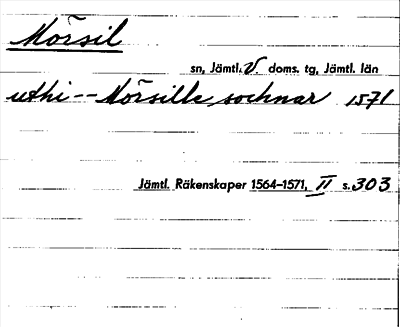 Mörsil
sn, Jämtl. V. doms. tg, Jämtl. län
uthi -- Mörsille sochnar 1571
Jämtl. Räkenskaper 1564-1571, II s. 303